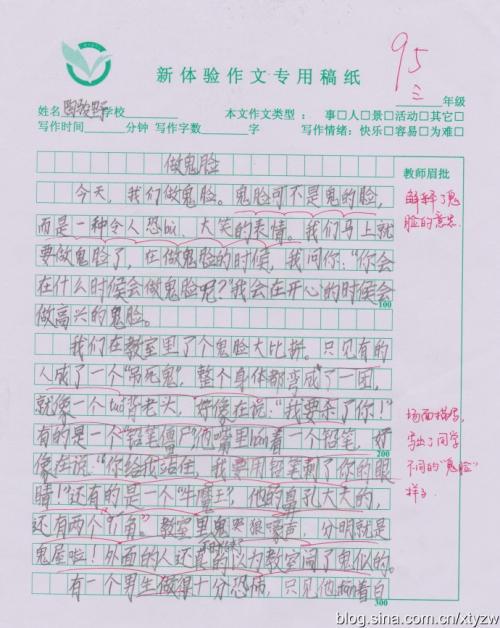 95
新体验作文专用稿纸
三年级
姓名 学校 本文作文类型： 事□人□景□活动□其它□
写作时间 分钟 写作字数 字 写作情绪：快乐□容易□为难□
做鬼脸
教师眉批
今天，我们做鬼脸。鬼脸可不是鬼的脸，
而是一种令人恐bù、大笑的表情。我们马上就
要做鬼脸了，在做鬼脸的时候，我问你：“你会
在什么时候会做鬼脸呢？”我会在开心的时候会
100
做高兴的鬼脸。
解释了鬼
脸的意思
我们在教室里了个鬼脸大比拼。只见有的
人成了一个“吊死鬼”，整个身体都变成了一团，
就像一个tuó背老头，好像在说：“我要杀了你！”
有的是一个“铅笔僵尸”他嘴里 着一个铅笔，好
200
像在说：“你给我站住，我要用铅笔刺了你的眼
睛！”还有的是一个“牛魔王”，他的鼻孔大大的，
还有两个“角”。教室里鬼哭狼嚎声，分明就是
鬼屋啦！外面的人还真的以为教室闹了鬼似的。
有一个男生做得十分恐怖，只见他 着白
300
场面描写，
写出了同学
不同的“鬼脸”
样子
blog.sina.com.cn/xtyzw